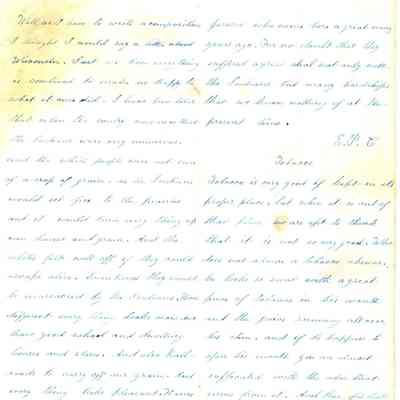 Well as I have to write a composition
I thought I would say a little about
Wisconsin. Just as been
is continued to made up to
what it once did. I have been told
that when the country was
the Indians were very numerous
and the white people were not sure
of a crop of grain. as the Indians
would set fire to the prairies
and it would burn every thing up
even houses and grain. And the
whites felt well off if they could
escape alive. Sometimes they would
be massacred by the Indians. How
different every thing looks now we
have good school and meeting
houses and also. And also Rail
roads to carry off our grain. And
every thing looks pleasant.
persons who came here a great many
years ago. I've no doubt that they
suffered a great deal not only with
the Indians but many hardships
that we know nothing of at the
present time.
E. P. C
Tobacco
Tobacco is very good if kept in its
proper place, but when it is out of
that place we are apt to think
that it is not so very good. Who
does not admire a tobacco chewer.
he looks so sweet with a great
piece of tobacco in his mouth
and the juice running all over
his chin. and if he happens to
open his mouth you are almost
suffocated with the odor that
comes from it. And then